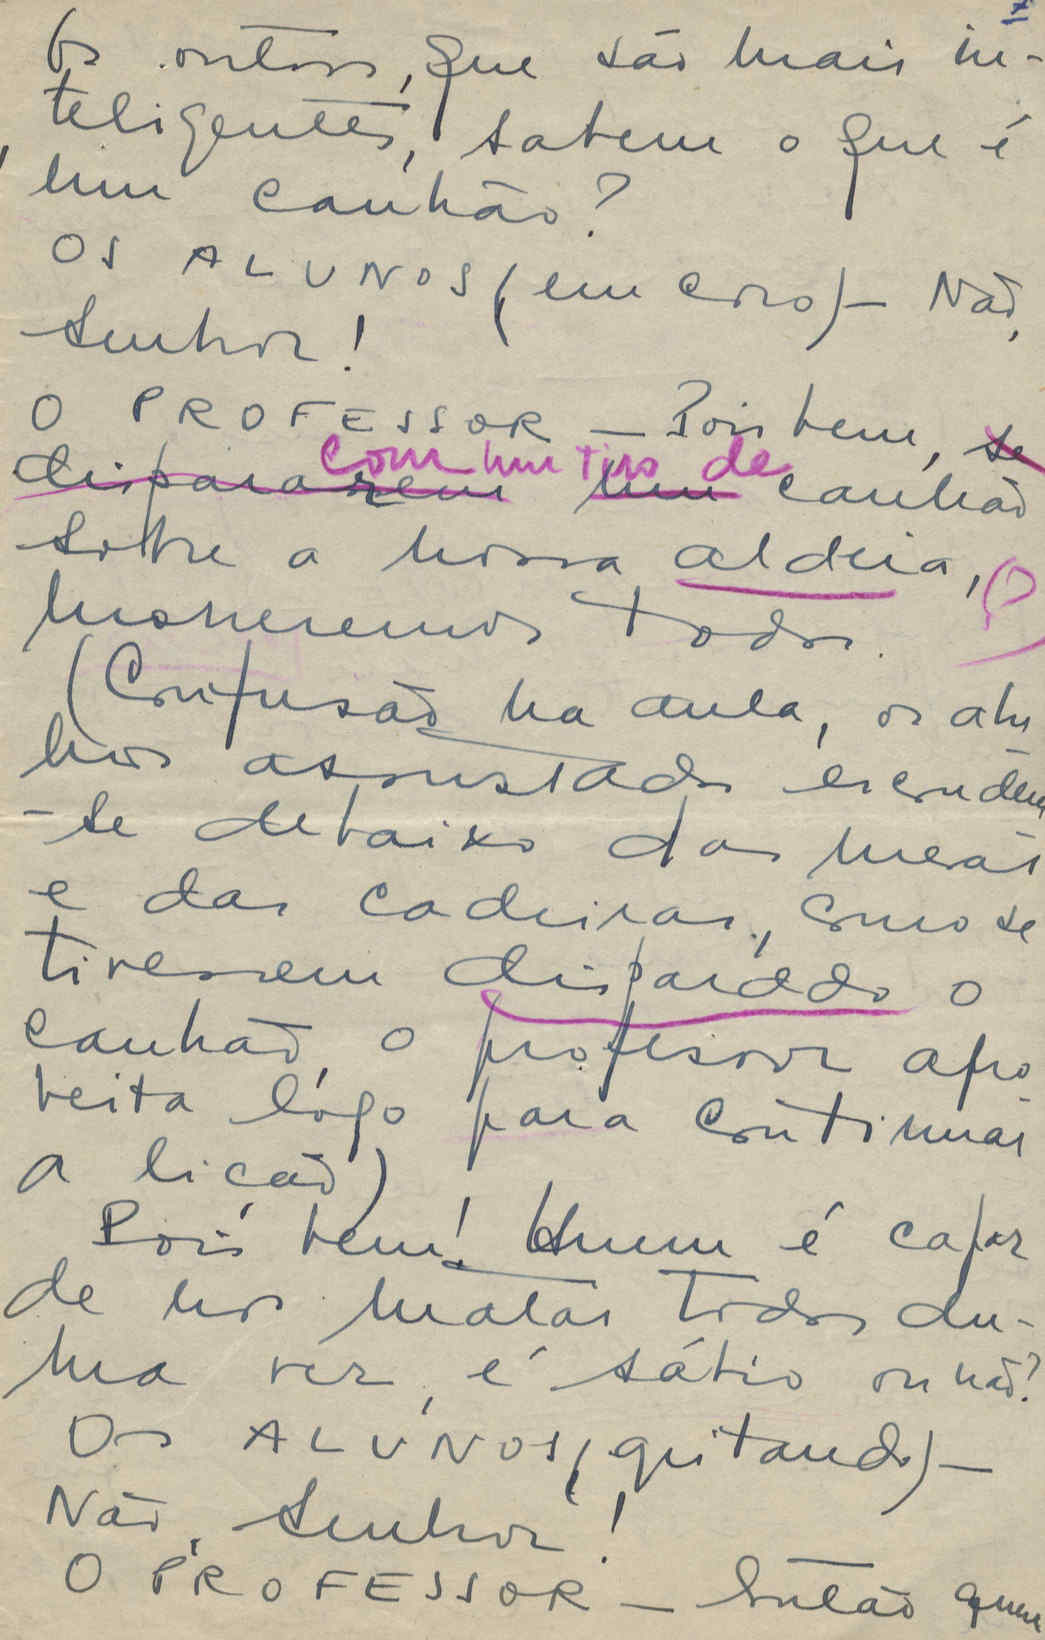 Os outros, que são mais in-
teligentes, sabem o que é
um canhão?
OS ALUNOS (em coro) — Não,
Senhor!
O PROFESSOR — Pois bem, se
com um tiro de
dispararem um canhão
sobre a nossa aldeia,
morreremos todos.
(Confusão na aula, os alu
nos assustados escondem
-se debaixo das mesas
e das cadeiras, como se
tivessem disparado o
canhão, o professor apro
veita lógo para continuar
a lição)
Pois bem! Quem é capaz
de nos matar todos du-
ma vez, é sábio ou não?
Os ALUNOS (gritando) —
Não, Senhor!
O PROFESSOR — Então quem